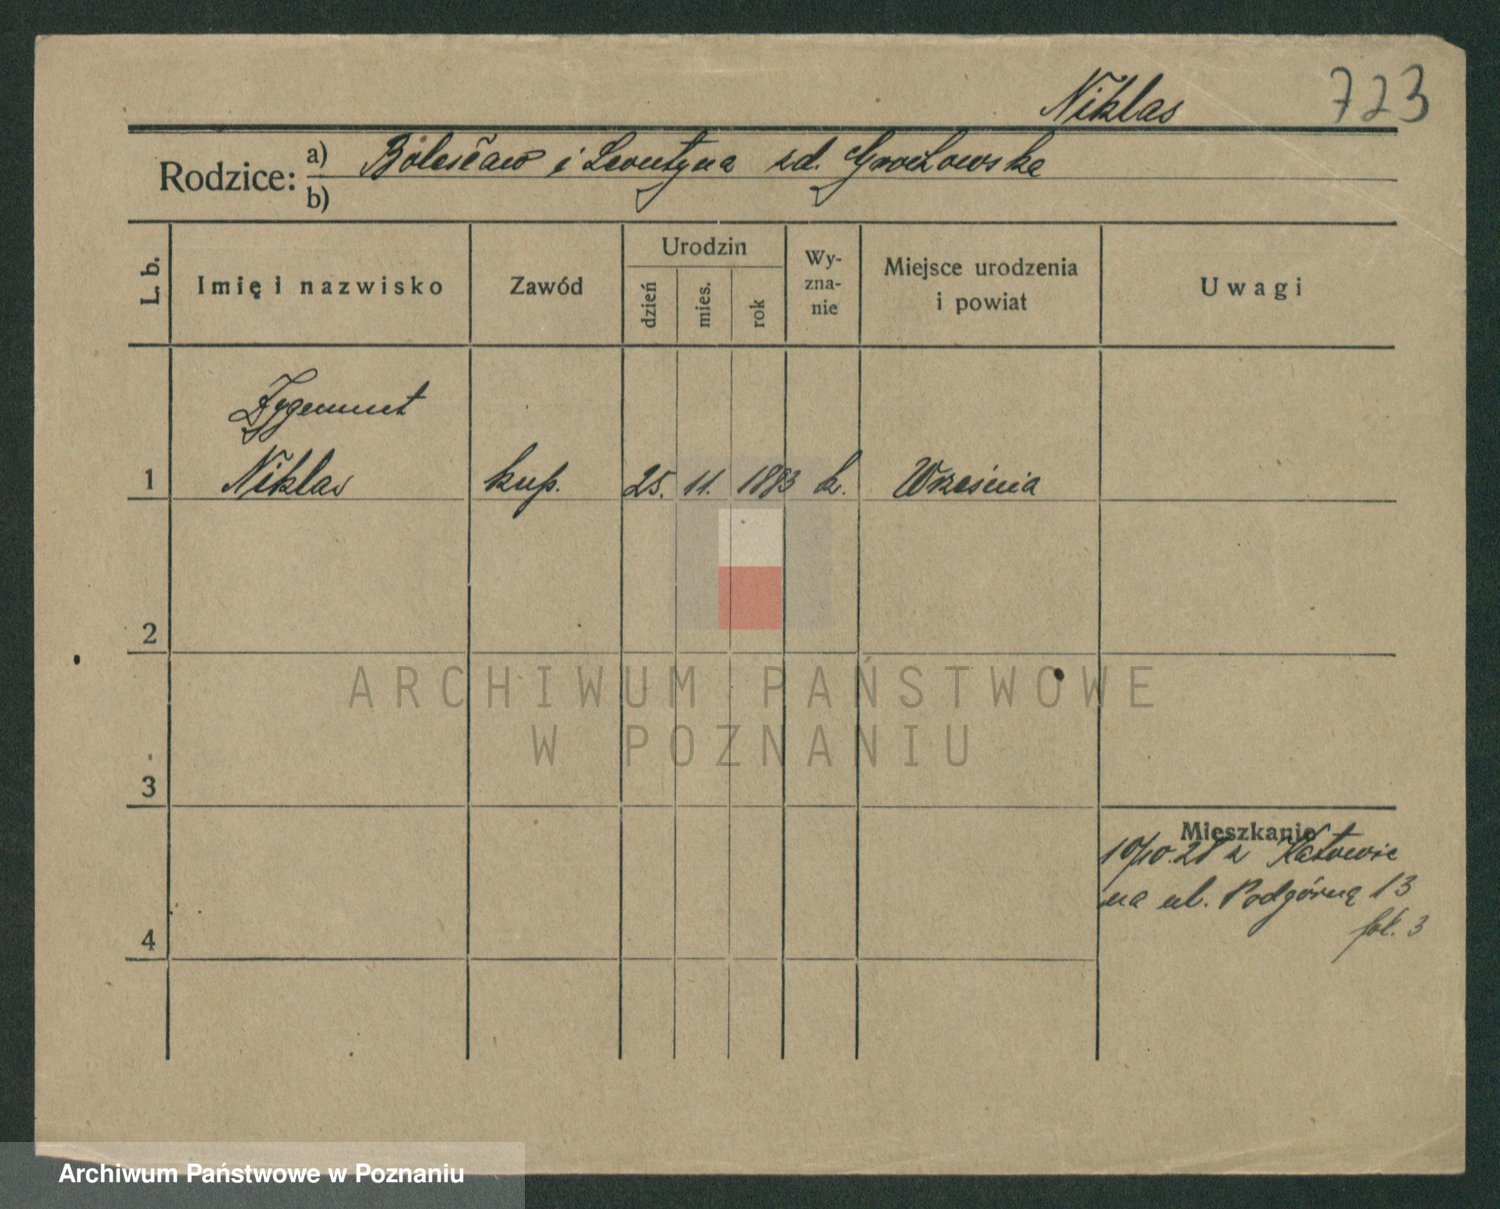 Niklas 723
Rodzice: a) Bolesław i Leontyna zd. Grochowska
b)
L. b. Imię i nazwisko Zawód Urodzin dzień mies. rok Wyzna-nie Miejsce urodzenia i powiat Uwagi
Zygmunt
1 Niklas kup. 25. 11. 1883 k. Września
2
ARCHIWUM PAŃSTWOWE
W POZNANIU
3
Mieszkanie
z Katowic
na ul. Podgórną 13
4
Archiwum Państwowe w Poznaniu